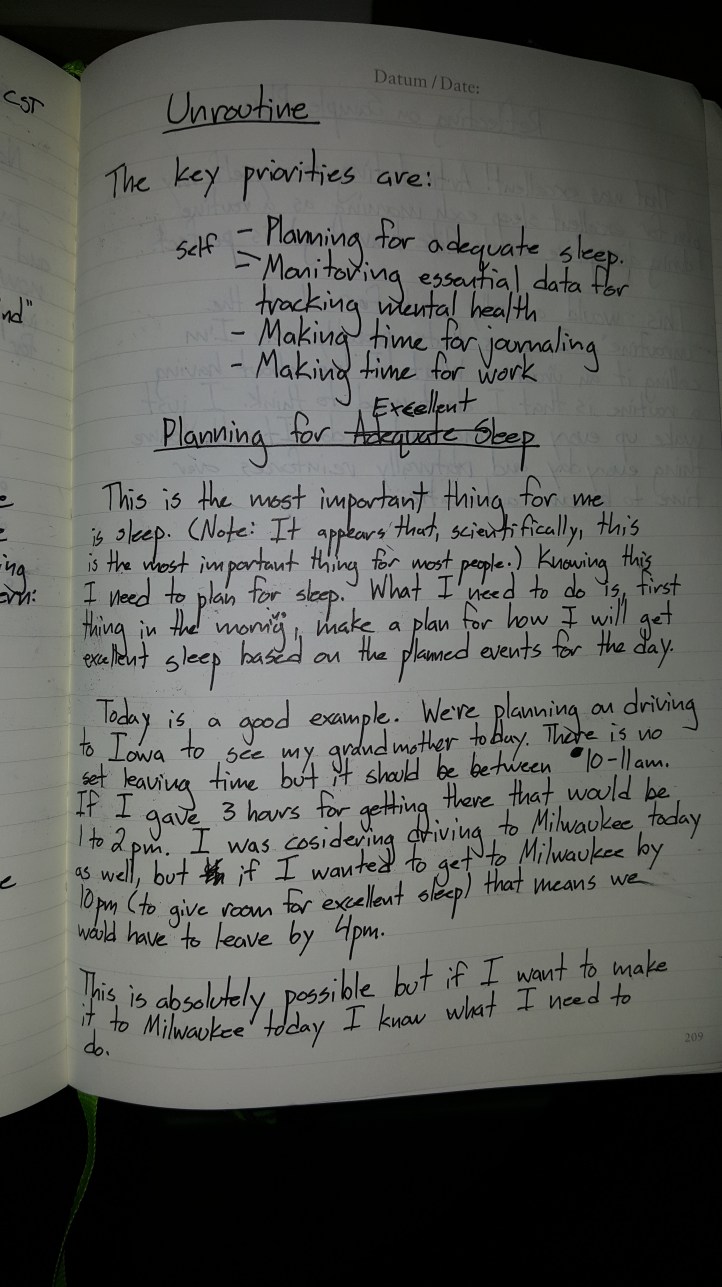 CST
nd"
e
ing
ern:
e
Datum / Date:
Unroutine
The key priorities are:
self - Planning for adequate sleep.
- Monitoring essential data for
tracking mental health
- Making time for journaling
- Making time for work
Excellent
Planning for Adequate Sleep
This is the most important thing for me
is sleep. (Note: It appears that, scientifically, this
is the most important thing for most people.) Knowing this
I need to plan for sleep. What I need to do is, first
thing in the morning, make a plan for how I will get
excellent sleep based on the planned events for the day.
Today is a good example. We're planning on driving
to Iowa to see my grandmother today. There is no
set leaving time but it should be between 10-11am.
If I gave 3 hours for getting there that would be
1 to 2pm. I was cosidering driving to Milwaukee today
as well, but if I wanted to get to Milwaukee by
10pm (to give room for excellent sleep) that means we
would have to leave by 4pm.
This is absolutely possible but if I want to make
it to Milwaukee today I know what I need to
do.
209